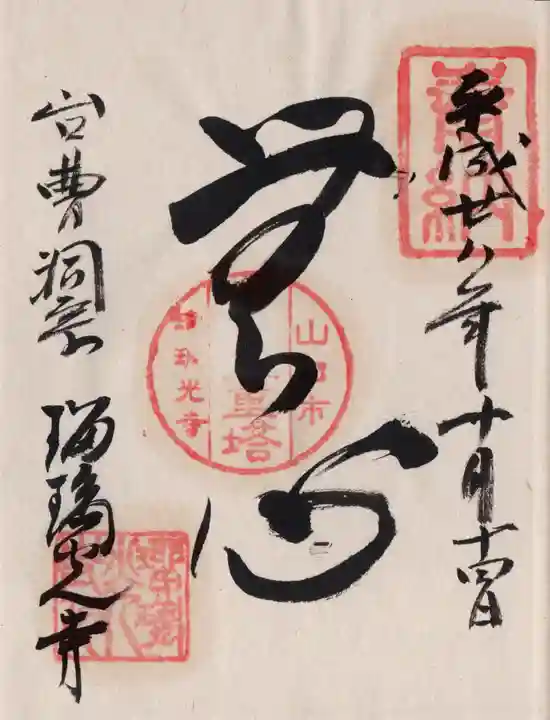 奉納
平成廿八年十月十四日
無心
山口市
五重塔
瑠璃光寺
山口曹洞宗 瑠璃光寺